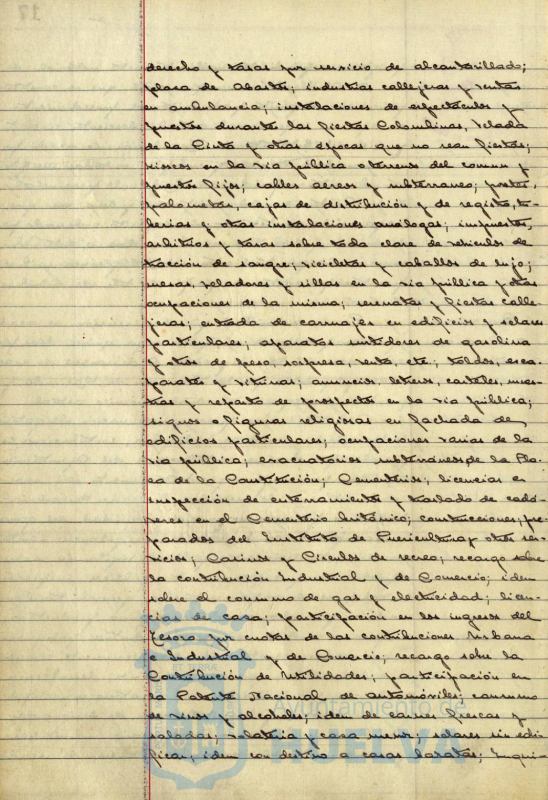 derecho y tasas por servicio de alcantarillado;
plaza de Abastos; industrias callejeras y ventas
en ambulancia; instalaciones de espectáculos y
puestos durante las fiestas Colombinas, Velada
de la Cinta y otras épocas que no sean fiestas;
kioscos en la vía pública o terrenos del común y
puestos fijos; cables aereos y subterraneos; postes,
palometas, cajas de distribución y de registro, tu-
berias y otras instalaciones análogas; impuestos,
arbitrios y tasas sobre toda clase de vehículos de
tracción de sangre; bicicletas y caballos de lujo;
mesas, veladores y sillas en la vía pública y otras
ocupaciones de la misma; serenatas y fiestas calle-
jeras; entrada de carruajes en edificios y solares
particulares; aparatos surtidores de gasolina
y otros de peso, sorpresa, venta, etc; toldos, esca-
parates y vitrinas; anuncios, letreros, carteles, mues-
tras y reparto de prospectos en la vía pública;
signos o figuras religiosas en fachada de
edificios particulares; ocupaciones varias de la
vía pública; evacuatorios subterraneos de la Pla-
za de la Constitución; Cementerios; licencias e
inspección de enterramientos y traslado de cadá-
veres en el Cementerio británico; construcciones; pre-
parados del Instituto de Puericultura y otros ser-
vicios; Casinos y Circulos de recreo; recargo sobre
la contribución Industrial y de Comercio; idem
sobre el consumo de gas y electricidad; licen-
cias de caza; participación en los ingresos del
Tesoro por cuotas de las contribuciones Urbana
e Industrial y de Comercio; recargo sobre la
Contribución de Utilidades; participación en
la Patente Nacional de automóviles; consumo
de vinos y alcoholes; idem de carnes frescas y
saladas; volatería y caza menor; solares sin edi-
ficar; idem con destino a casas baratas; Inqui-
Ayuntamiento de
HUELVA
17